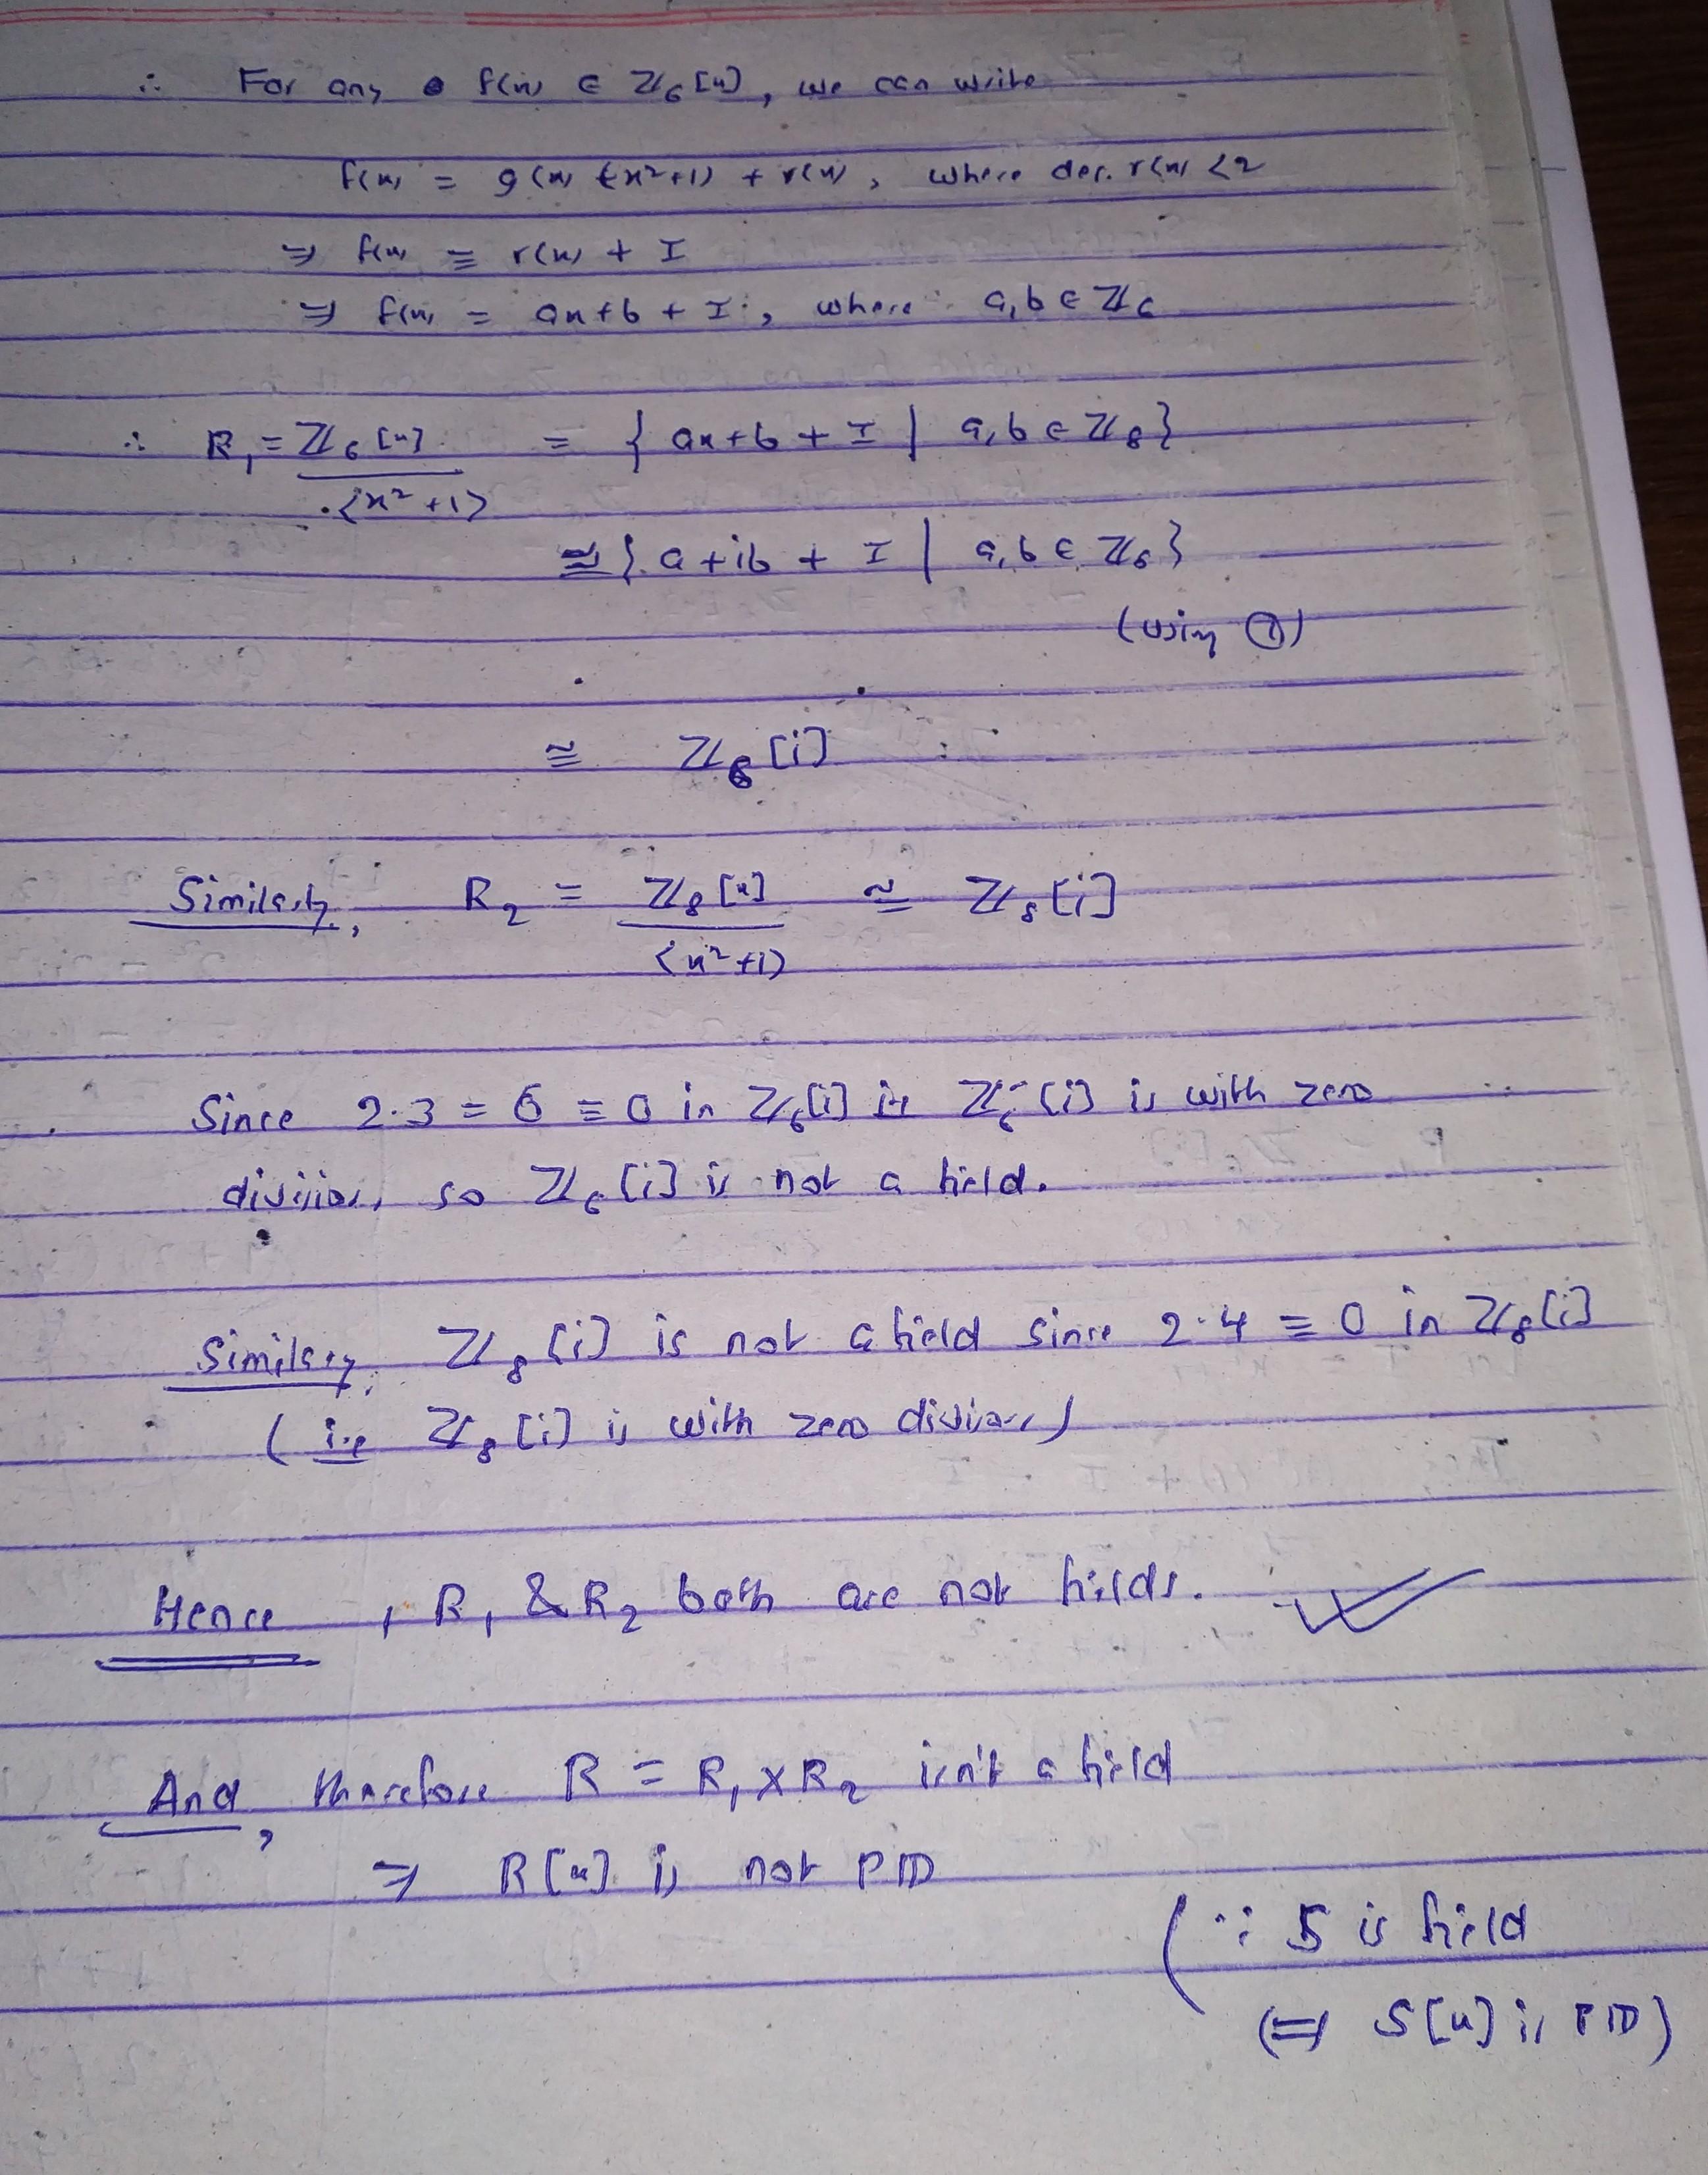 ∴ For any f(x) ∈ ℤ₆[x], we can write
f(x) = g(x) (x²+1) + r(x), where deg. r(x) < 2
⇒ f(x) ≡ r(x) + I
⇒ f(x) = ax+b + I, where a,b ∈ ℤ₆
∴ R₁ = ℤ₆[x] = { ax+b + I | a,b ∈ ℤ₆}
<x²+1>
≅ { a+ib + I | a,b ∈ ℤ₆}
(using ①)
≅ ℤ₆[i]
Similarly, R₂ = ℤ₈[x] ≅ ℤ₈[i]
<x²+1>
Since 2·3 = 6 ≡ 0 in ℤ₆[i] ie ℤ₆[i] is with zero
divisors, so ℤ₆[i] is not a field.
Similarly, ℤ₈[i] is not a field since 2·4 ≡ 0 in ℤ₈[i]
(i.e ℤ₈[i] is with zero divisors)
Hence, R₁ & R₂ both are not fields.
And, therefore R = R₁ × R₂ isn't a field
⇒ R[x] is not PID
(∵ S is field
⇔ S[x] is PID)